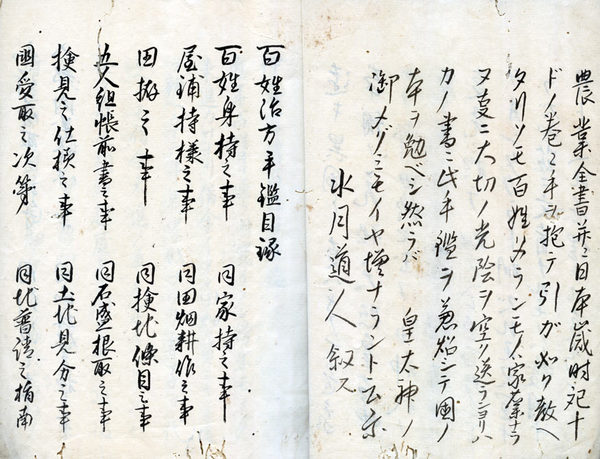 農業全書并ニ日本歳時記十
ドノ巻ニ手ヲ抱テ引ガ如ク教ヘ
タリソモ百姓タランモノハ家業ナラ
ヌ ニ大切ノ光陰ヲ空ク送ランヨリハ
カノ書ニ此手鑑ヲ兼 シテ国ノ
本ヲ勉ベシ然ラバ 皇太神ノ
御メグミモイヤ増ナラント云尓
水月道人 叙ス
百姓治方手鑑目録
百姓身持之事 同家持之事
屋鋪持様之事 同田畑耕作之事
田 之事 同検地條目之事
五人組帳前書之事 同石盛根取之事
検見之仕様之事 同土地見分之事
 受取之次第 同地普請之指南